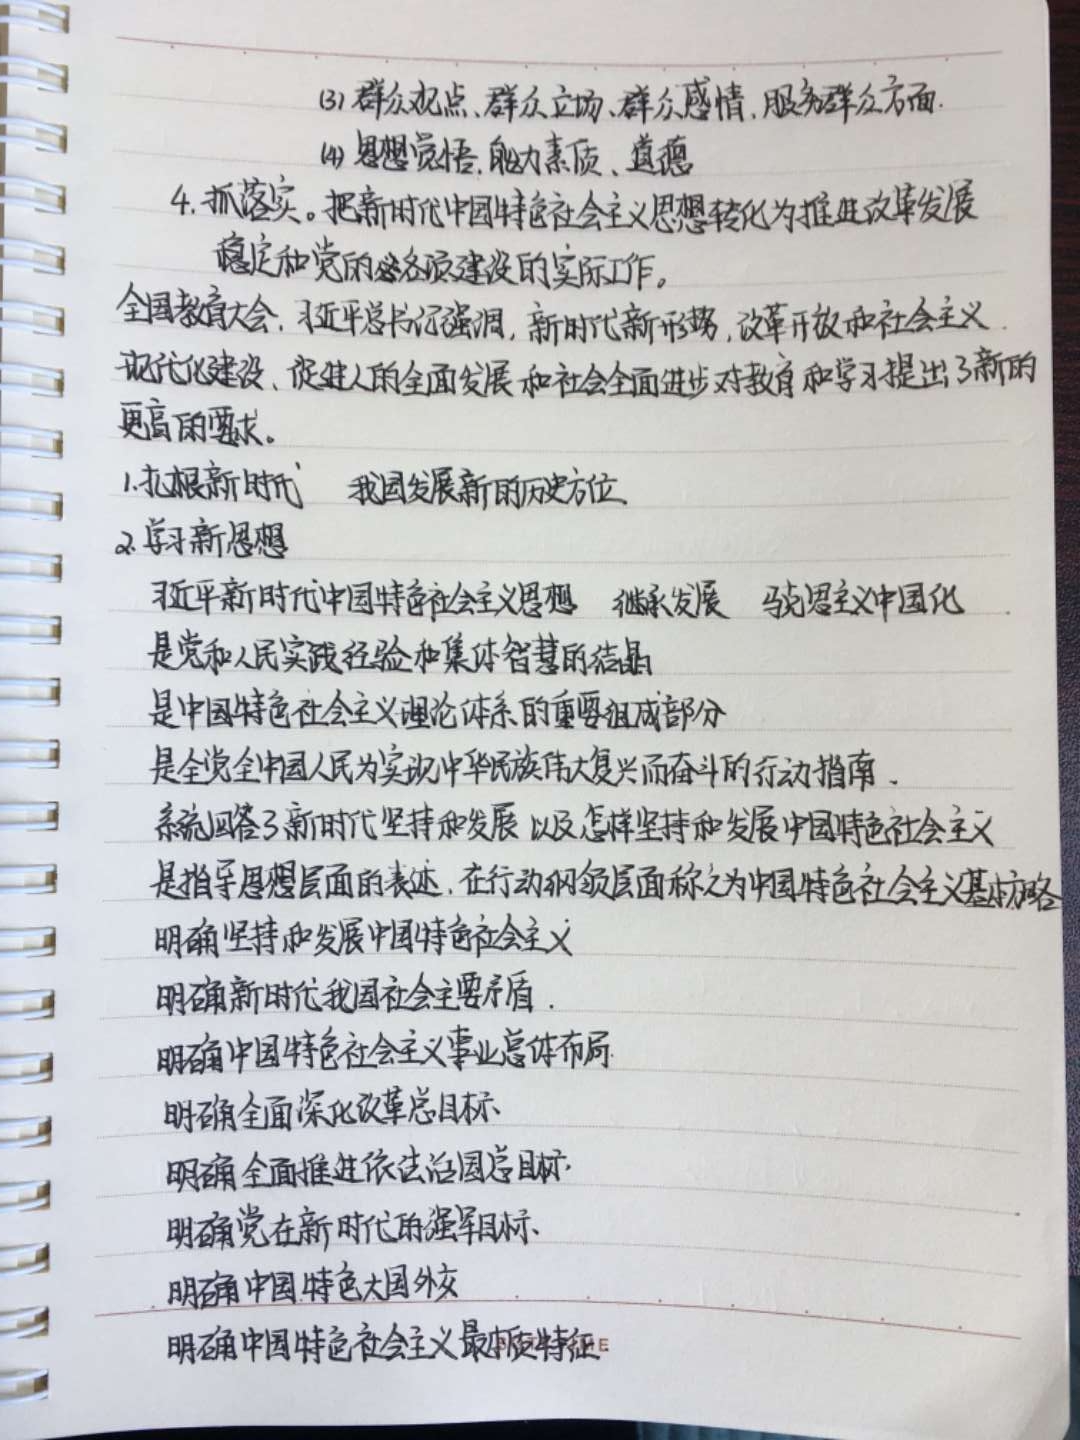 (3)群众观点、群众立场、群众感情、服务群众方面.
(4)思想觉悟、能力素质、道德
4.抓落实。把新时代中国特色社会主义思想转化为推进改革发展
稳定和党的各项建设的实际工作。
全国教育大会,习近平总书记强调,新时代新形势,改革开放和社会主义
现代化建设、促进人的全面发展和社会全面进步对教育和学习提出了新的
更高的要求。
1.扎根新时代 我国发展新的历史方位
2.学习新思想
习近平新时代中国特色社会主义思想 继承发展 马克思主义中国化
是党和人民实践经验和集体智慧的结晶
是中国特色社会主义理论体系的重要组成部分
是全党全中国人民为实现中华民族伟大复兴而奋斗的行动指南.
系统回答了新时代坚持和发展以及怎样坚持和发展中国特色社会主义
是指导思想层面的表述,在行动纲领层面称之为中国特色社会主义基本方略
明确坚持和发展中国特色社会主义
明确新时代我国社会主要矛盾.
明确中国特色社会主义事业总体布局
明确全面深化改革总目标
明确全面推进依法治国总目标
明确党在新时代的强军目标
明确中国特色大国外交
明确中国特色社会主义最本质特征